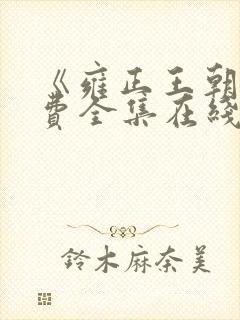 《雍正王朝
费全集在线
鈴木麻奈美